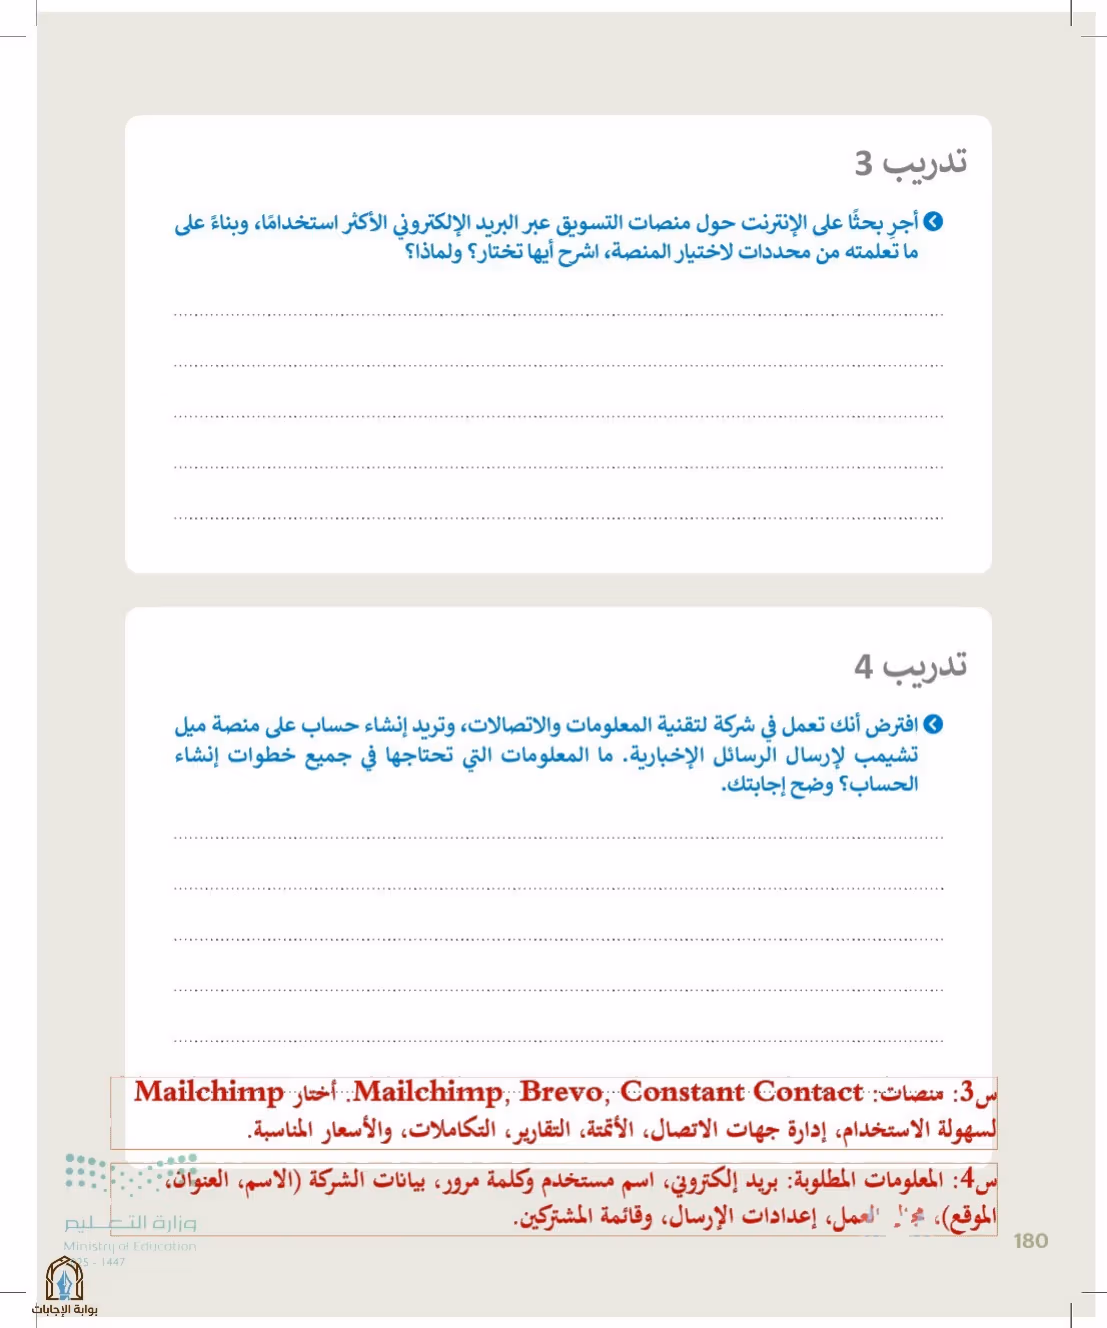 تدريب 3
أجرِ بحثًا على الإنترنت حول منصات التسويق عبر البريد الإلكتروني الأكثر استخدامًا، وبناءً على
ما تعلمته من محددات لاختيار المنصة، اشرح أيها تختار؟ ولماذا؟
تدريب 4
افترض أنك تعمل في شركة لتقنية المعلومات والاتصالات، وتريد إنشاء حساب على منصة ميل
تشيمب لإرسال الرسائل الإخبارية. ما المعلومات التي تحتاجها في جميع خطوات إنشاء
الحساب؟ وضح إجابتك.
س3: منصات: Mailchimp, Brevo, Constant Contact. أختار Mailchimp
لسهولة الاستخدام، إدارة جهات الاتصال، الأتمتة، التقارير، التكاملات، والأسعار المناسبة.
س4: المعلومات المطلوبة: بريد إلكتروني، اسم مستخدم وكلمة مرور، بيانات الشركة (الاسم، العنوان،
الموقع)، مجال العمل، إعدادات الإرسال، وقائمة المشتركين.
وزارة التعليم
Ministry of Education
- 1447
180
بوابة الإجابات